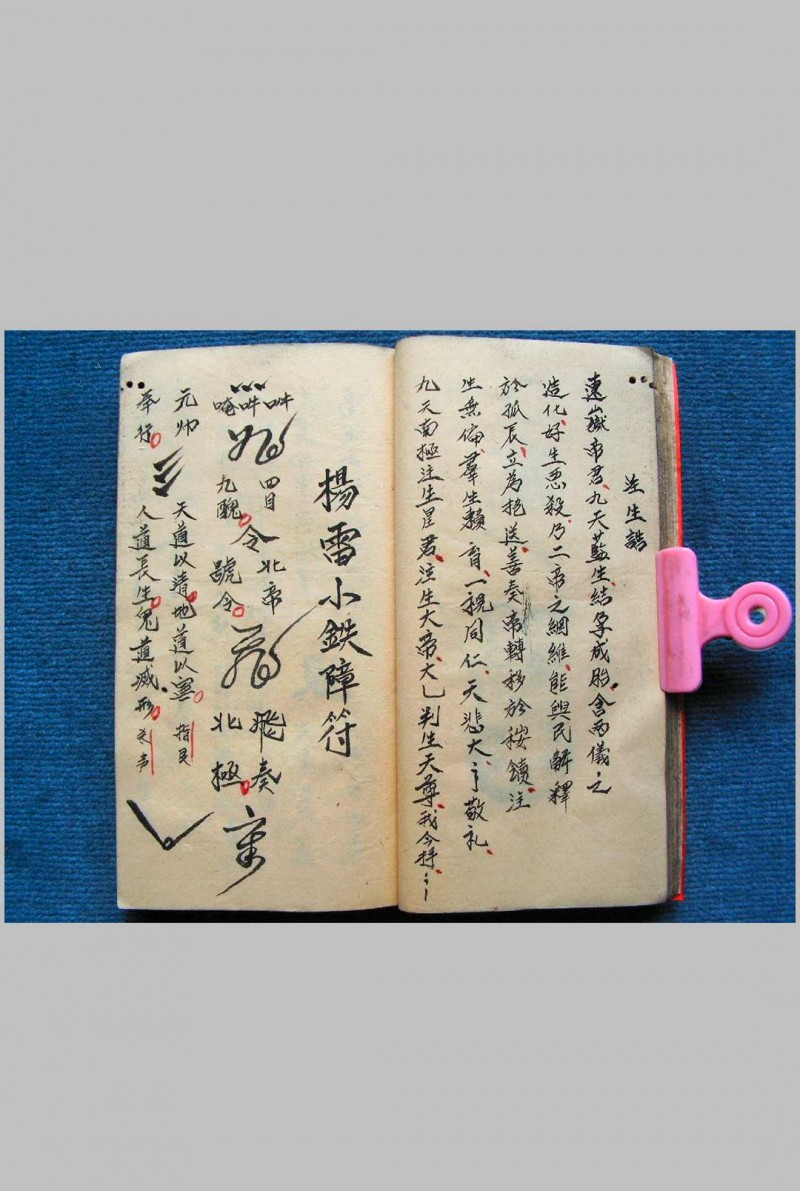 注生誥
東嶽帝君、九天蘇生、結孕成胎、含兩儀之
造化、好生悪殺、乃二帝之網維、能與民解釋
於孤辰、立為抱送、善奏帝轉移於桉鎖、注
生無偏、羣生賴育、一視同仁、天悲大、敬礼、
九天南極注生星君、注生大帝、大乙判生天尊、我今持
楊雷小鉄障符
唵吽吽
四目
九醜
令
北帝
號令
飛奏
北極
元帅
奉行
天道以清地道以寧
人道長生鬼道滅形